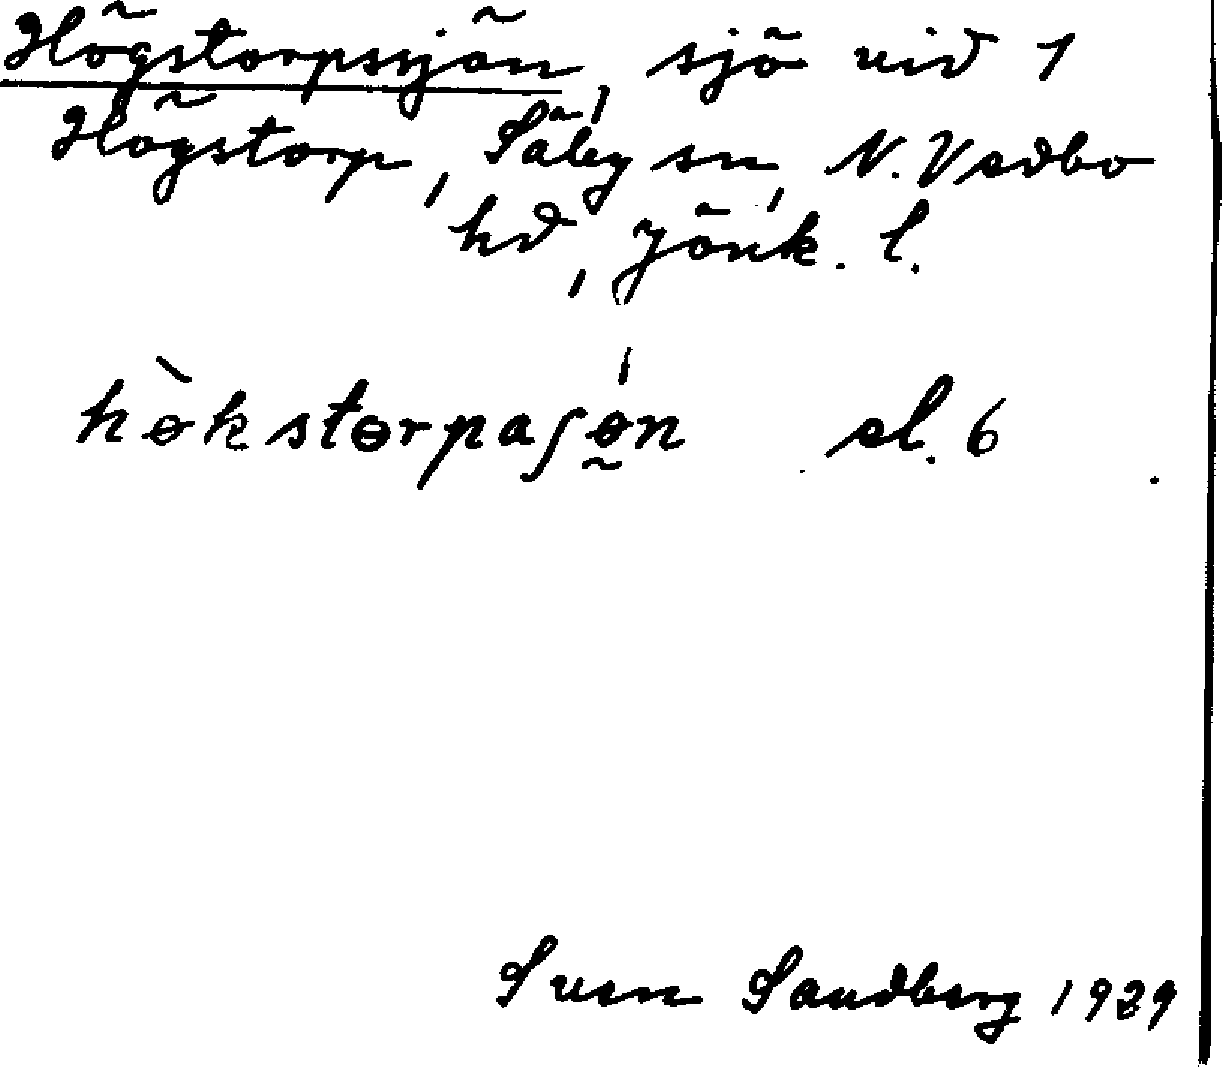 Högstorpssjön, sjö vid 1
Högstorp, Säby sn, N. Vedbo
hd, Jönk. l.
hɵ̀kstɵrpaʃɵ̰́n el. 6
Sven Sandberg 1929